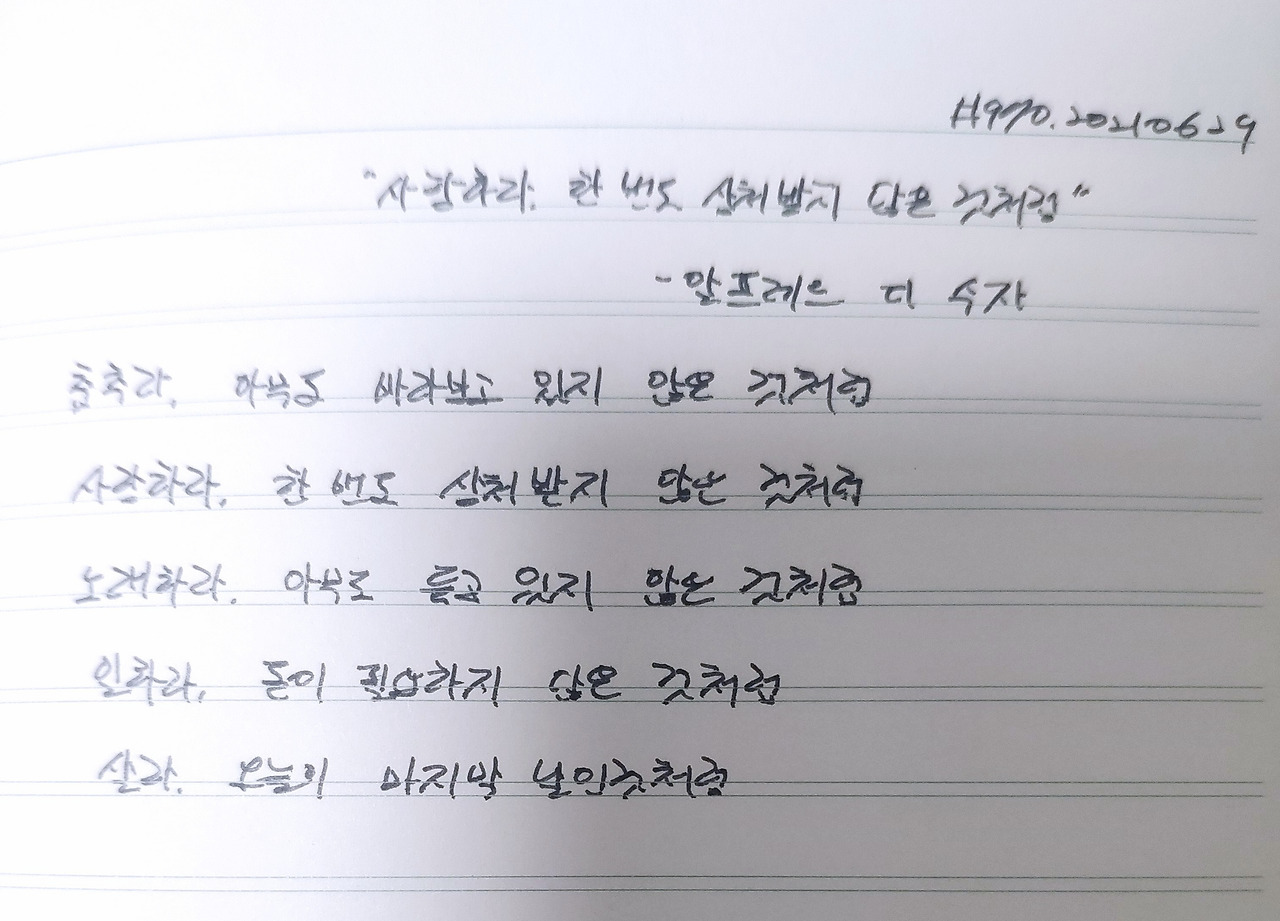 H970.20210629
"사랑하라. 한 번도 상처받지 않은 것처럼"
- 알프레드 디 수자
춤추라, 아무도 바라보고 있지 않은 것처럼
사랑하라, 한 번도 상처받지 않은 것처럼
노래하라. 아무도 듣고 있지 않은 것처럼
일하라, 돈이 필요하지 않은 것처럼
살라. 오늘이 마지막 날인것처럼